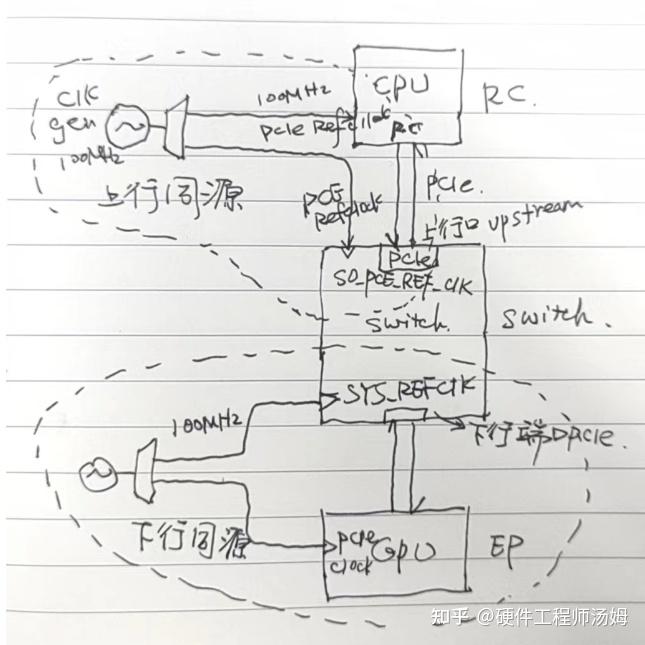 CPU
RC.
Clk
gen
100MHz
100MHz
PCIe Ref Clock
上行同源
PCIe.
上行口 upstream
PCIe
S0_PCE_REF_CLK
Switch.
Switch.
SYS_REFCLK
100MHz
下行端口pcie.
下行同源
pcie
clock
GPU
EP
知乎 @硬件工程师汤姆